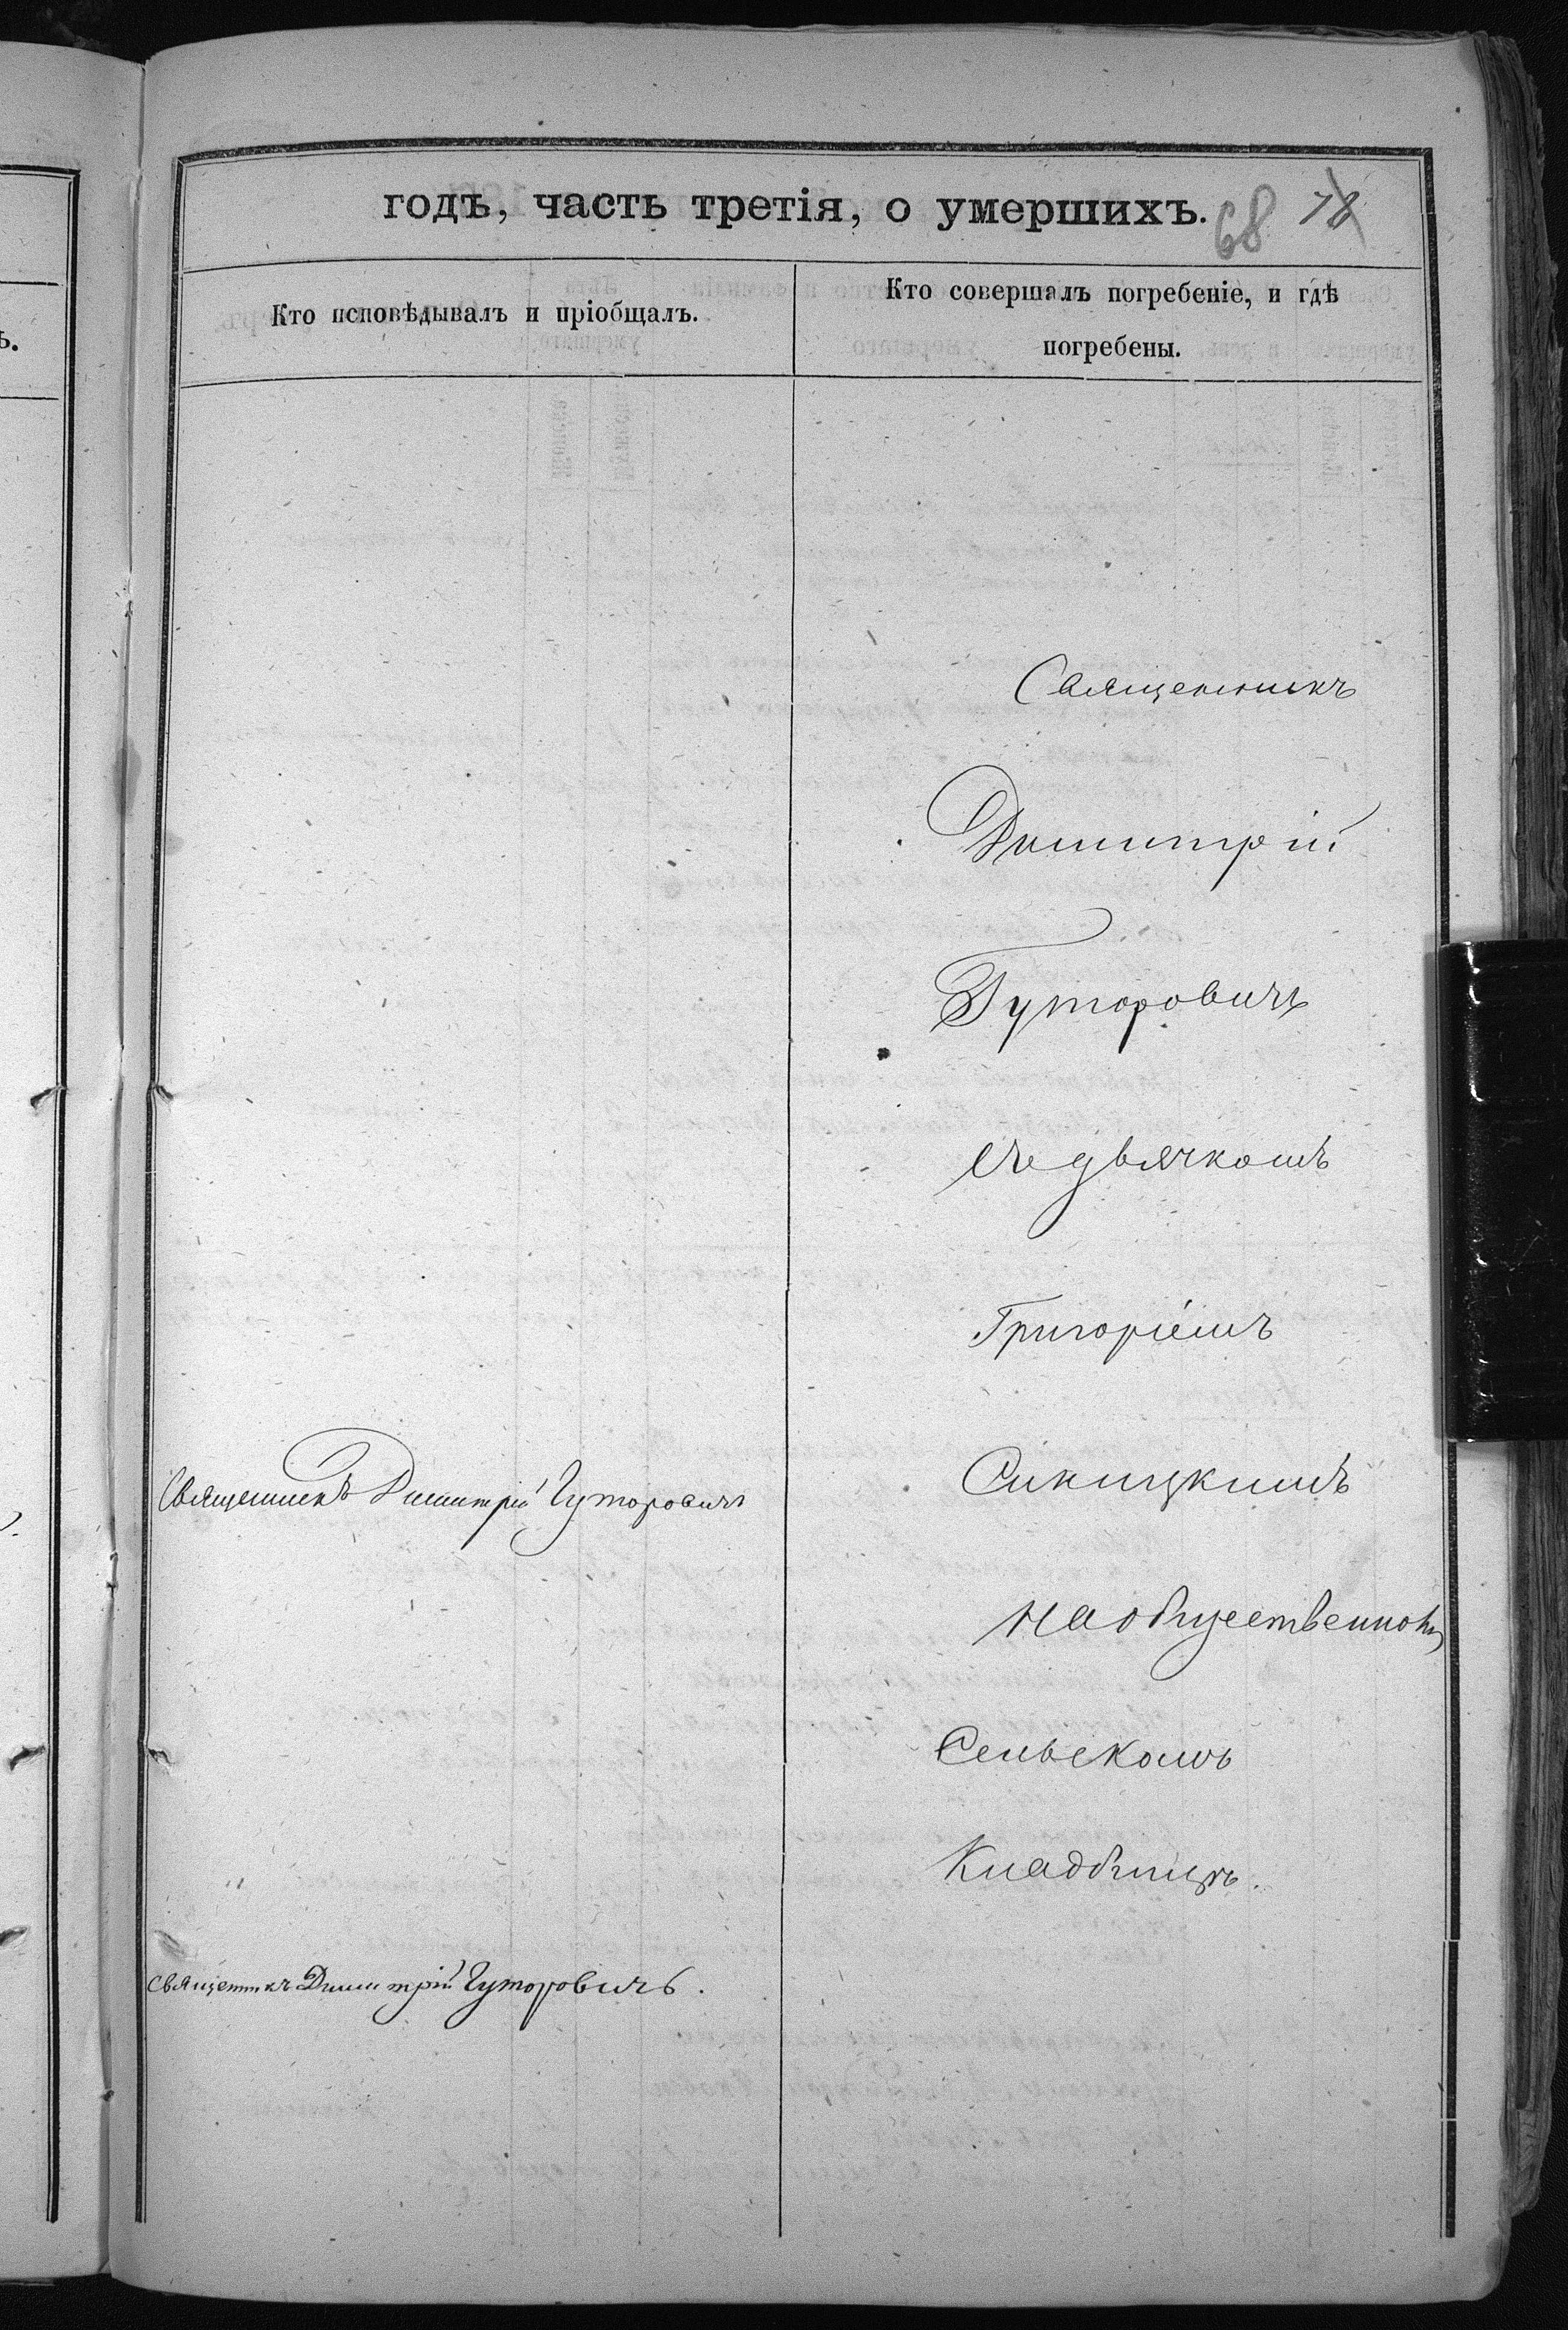 годъ, часть третія, о умершихъ.
68 78
Кто исповѣдывалъ и пріобщалъ.
Кто совершалъ погребеніе, и гдѣ
погребены.
Священникъ
Димитрій
Гуторовичъ
съ дьячкомъ
Григоріемъ
Синицкимъ
Священникъ Димитрій Гуторовичъ
на общественномъ
Сельскомъ
Кладбищѣ.
Священникъ Димитрій Гуторовичъ.